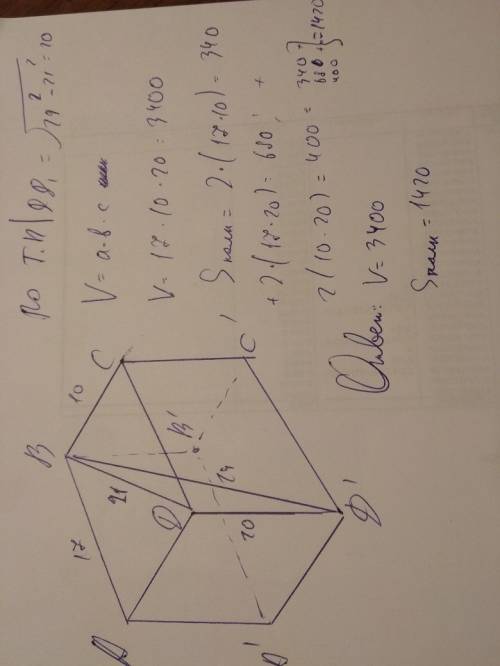 По Т.П | DD₁ = √29² - 21² = 20
V = a·b·c
V = 17·10·20 = 3400
Sполн = 2·(17·10) = 340
+ 2·(17·20) = 680 +
2(10·20) = 400 = 340 + 680 + 400 } = 1420
Ответ: V = 3400
Sполн = 1420
A
B
C
D
A'
B'
C'
D'
17
10
21
29
20